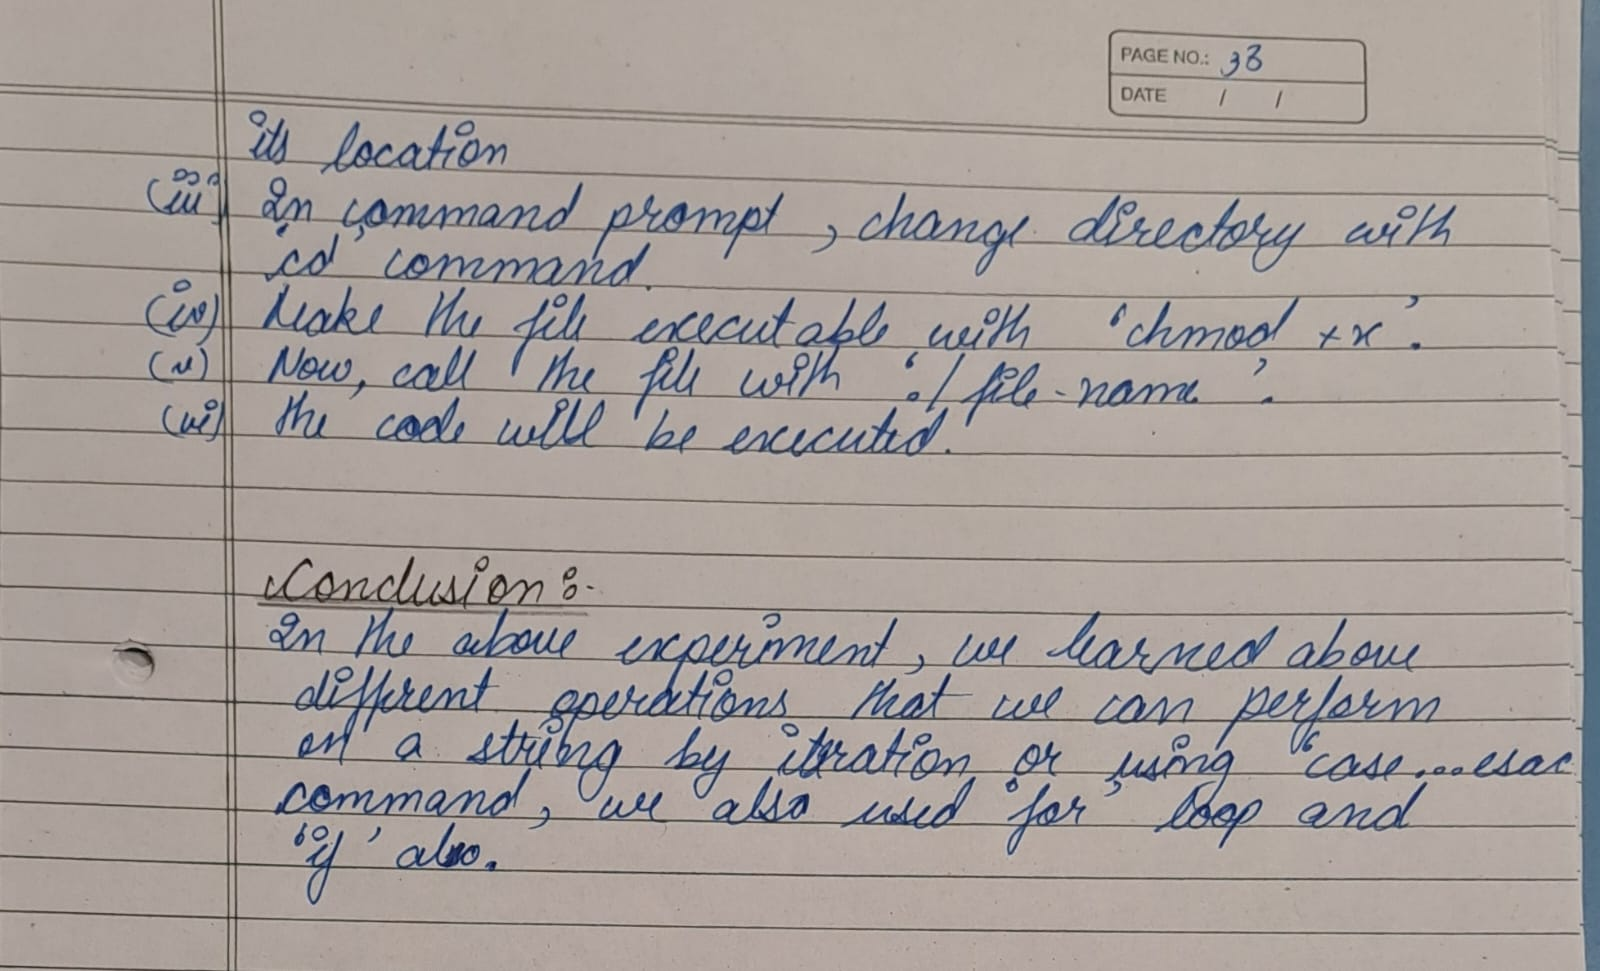 PAGE NO.: 38
DATE / /
its location
(iii) In command prompt, change directory with
'cd' command.
(iv) Make the file executable with 'chmod +x'.
(v) Now, call the file with './file-name'.
(vi) the code will be executed.
Conclusion :-
In the above experiment, we learned above
different operations that we can perform
on a string by itration or using 'case...esac
command, we also used 'for' loop and
'if' also.